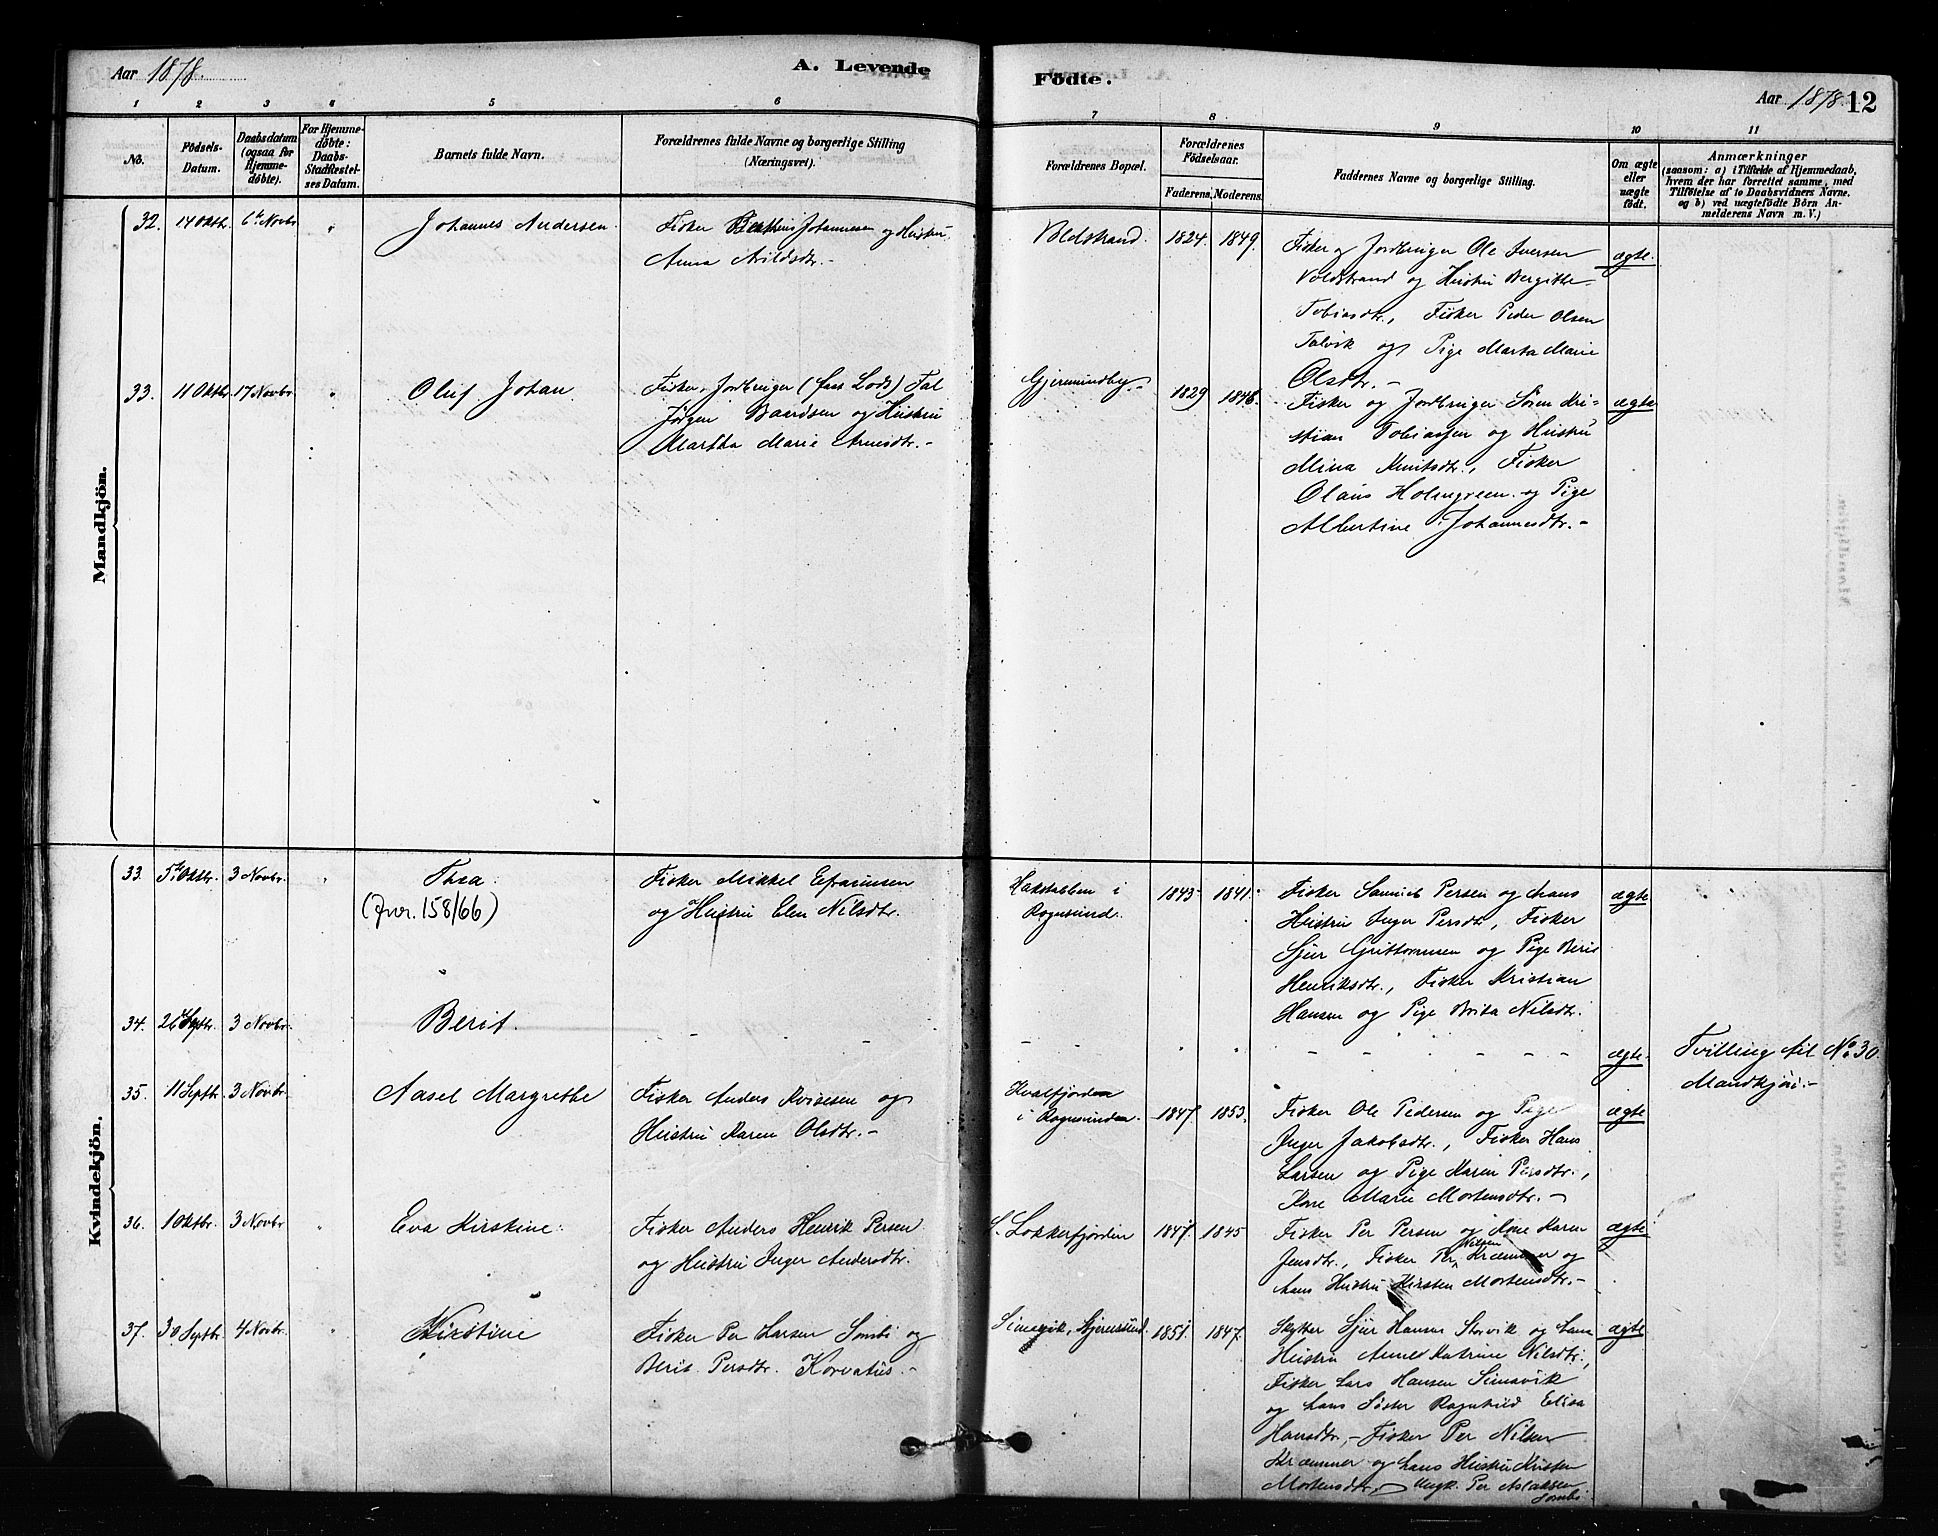 Aar 1878.
A. Levende
Födte.
Aar 1878. 12
1 2 3 4 5 6 7 8 9 10 11
No.
Födsels-
Datum.
Daabsdatum
(ogsaa for
Hjemme-
döbte).
For Hjemme-
döbte:
Daabs-
Stadfæstel-
ses Datum.
Barnets fulde Navn.
Forældrenes fulde Navne og borgerlige Stilling
(Næringsvei).
Forældrenes Bopæl.
Forældrenes
Födselsaar.
Faderens. Moderens.
Faddernes Navne og borgerlige Stilling.
Om ægte
eller
uægte
födt.
Anmærkninger
(saasom: a) i Tilfælde af Hjemmedaab,
hvem der har forrettet samme, med
Tilföielse af to Daabsvidners Navne.
og b) ved uægtefödte Börn An-
melderens Navn m. V.)
Mandkjön.
32. 14 Oktbr. 6te Novbr. "
Johannes Andersen.
Fisker Johannesen og Hustru
Anna Arildsdtr. -
Voldstrand. 1824. 1849.
Fisker og Jordbruger Ole Iversen
Voldstrand og Hustru Bergitte
Tobiasdtr., Fisker Peder Olsen
Talvik og Pige Marta Marie
Olsdtr. -
ægte.
33. 11 Oktbr. 17 Novbr. "
Oluf Johan
Fisker, Jordbruger (faas Lods) Tal
Jørgen Baardsen og Hustru
Martha Marie Arnesdtr. -
Gjermundby. - 1829 1846.
Fisker og Jordbruger Sören Kri-
stian Tobiassen og Hustru
Mina Knutsdtr., Fisker
Olaus Holmgreen og Pige
Albertine Johannesdtr. -
ægte
Kvindekjön.
33. 5te Oktbr. 3 Novbr. "
Thea.
(Jnr. 158/66)
Fisker Mikkel Efraimsen
og Hustru Elen Nilsdtr.
Hakstabben i
Rognsund. 1843 1841.
Fisker Samuel Persen og hans
Hustru Inger Persdtr, Fisker
Sjur Guttormsen og Pige Berit
Henriksdtr., Fisker Kristian
Hansen og Pige Brita Nilsdtr.
ægte
34. 26 Septbr. 3 Novbr.
Berit.
ægte.
Tvilling til No. 30
Mandkjön. -
35. 11 Septbr. 3 Novbr.
Aasel Margrethe
Fisker Anders og
Hustru Karen Olsdtr. -
Kvalfjorden
i Rognsundet. 1847. 1853.
Fisker Ole Pedersen og Pige
Inger Jakobsdtr., Fisker Hans
Larsen og Pige Karen Persdtr.,
Kone Marie Mortensdtr. -
ægte
36. 1 Oktbr. 3 Novbr "
Eva Kirstine.
Fisker Anders Henrik Persen
og Hustru Inger Andersdtr.
S. Lokkerfjorden 1847. 1845
Fisker Per Persen og Kone Karen
Jensdtr., Fisker Per Nilsen Kræmmer og
hans Hustru Kirsten Mortensdtr. -
ægte
37. 30 Septbr. 4 Novbr. "
Kirstine
Fisker Per Larsen Sombi og
Berit Persdtr. Korvatus. -
Simavik, Stjernsund. 1851. 1847.
Skytter Sjur Hansen Storvik og hans
Hustru Anne Katrine Nilsdtr.,
Fisker Lars Hansen Simavik
og hans Söster Ragnhild Elisa
Hansdtr, - Fisker Per Nilsen
Kræmmer og hans Hustru Kirsten
Mortensdtr, Ungk. Per Aslaksen
Sombi
ægte